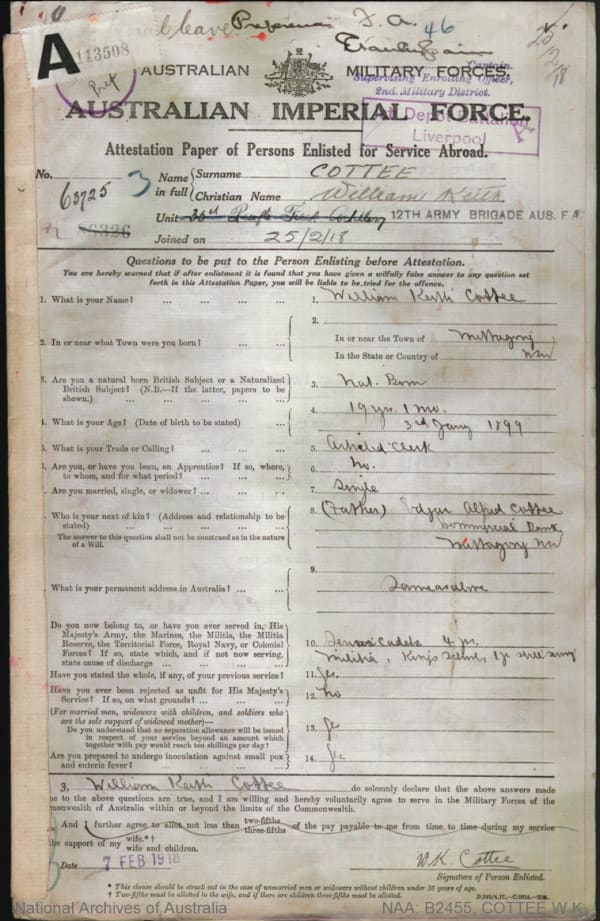 leave Preference F.A. 46
A
113508
Pref
25/2/18
Captain.
Supervising Enrolling Officer,
2nd. Military District.
AUSTRALIAN MILITARY FORCES.
AUSTRALIAN IMPERIAL FORCE.
Depot Battalion
Liverpool
Attestation Paper of Persons Enlisted for Service Abroad.
No. 63725 3
86326
Name in full { Surname COTTEE
Christian Name William Keith
Unit 12TH ARMY BRIGADE AUS. F A
Joined on 25/2/18
Questions to be put to the Person Enlisting before Attestation.
You are hereby warned that if after enlistment it is found that you have given a wilfully false answer to any question set
forth in this Attestation Paper, you will be liable to be tried for the offence.
1. What is your Name? ... ... ... ... 1. William Keith Cottee
2. In or near what Town were you born? ... ... 2. In or near the Town of Mittagong
In the State or Country of NSW
3. Are you a natural born British Subject or a Naturalized
British Subject? (N.B.—If the latter, papers to be
shown.) ... ... ... ... 3. Nat. Born
4. What is your Age? (Date of birth to be stated) ... 4. 19 yrs. 1 mo.
3rd Jany 1899
5. What is your Trade or Calling? ... ... ... 5. Articled Clerk
6. Are you, or have you been, an Apprentice? If so, where,
to whom, and for what period? ... ... ... 6. No.
7. Are you married, single, or widower? ... ... 7. Single
Who is your next of kin? (Address and relationship to be
stated) ... ... ... ... 8. (Father) Edgar Alfred Cottee
Commercial Bank
Mittagong NSW
The answer to this question shall not be construed as in the nature
of a Will.
What is your permanent address in Australia? ... ... 9. Same as above
Do you now belong to, or have you ever served in, His
Majesty's Army, the Marines, the Militia, the Militia
Reserve, the Territorial Force, Royal Navy, or Colonial
Forces? If so, state which, and if not now serving,
state cause of discharge ... ... ... 10. Senior Cadets 4 yrs.
Militia,
Have you stated the whole, if any, of your previous service? 11. Yes.
Have you ever been rejected as unfit for His Majesty's
Service? If so, on what grounds? ... ... ... 12. No
(For married men, widowers with children, and soldiers who
are the sole support of widowed mother)—
Do you understand that no separation allowance will be issued
in respect of your service beyond an amount which
together with pay would reach ten shillings per day? 13. Yes
Are you prepared to undergo inoculation against small pox
and enteric fever? ... ... ... ... 14. Yes
I, William Keith Cottee do solemnly declare that the above answers made
me to the above questions are true, and I am willing and hereby voluntarily agree to serve in the Military Forces of the
monwealth of Australia within or beyond the limits of the Commonwealth.
And I further agree to allot not less than two-fifths three-fifths of the pay payable to me from time to time during my service
the support of my wife.*†
wife and children.
Date 7 FEB 1918
W.K. Cottee
Signature of Person Enlisted.
* This clause should be struck out in the case of unmarried men or widowers without children under 16 years of age.
† Two-fifths must be allotted to the wife, and if there are children three-fifths must be allotted.
National Archives of Australia
NAA: B2455, COTTEE W K